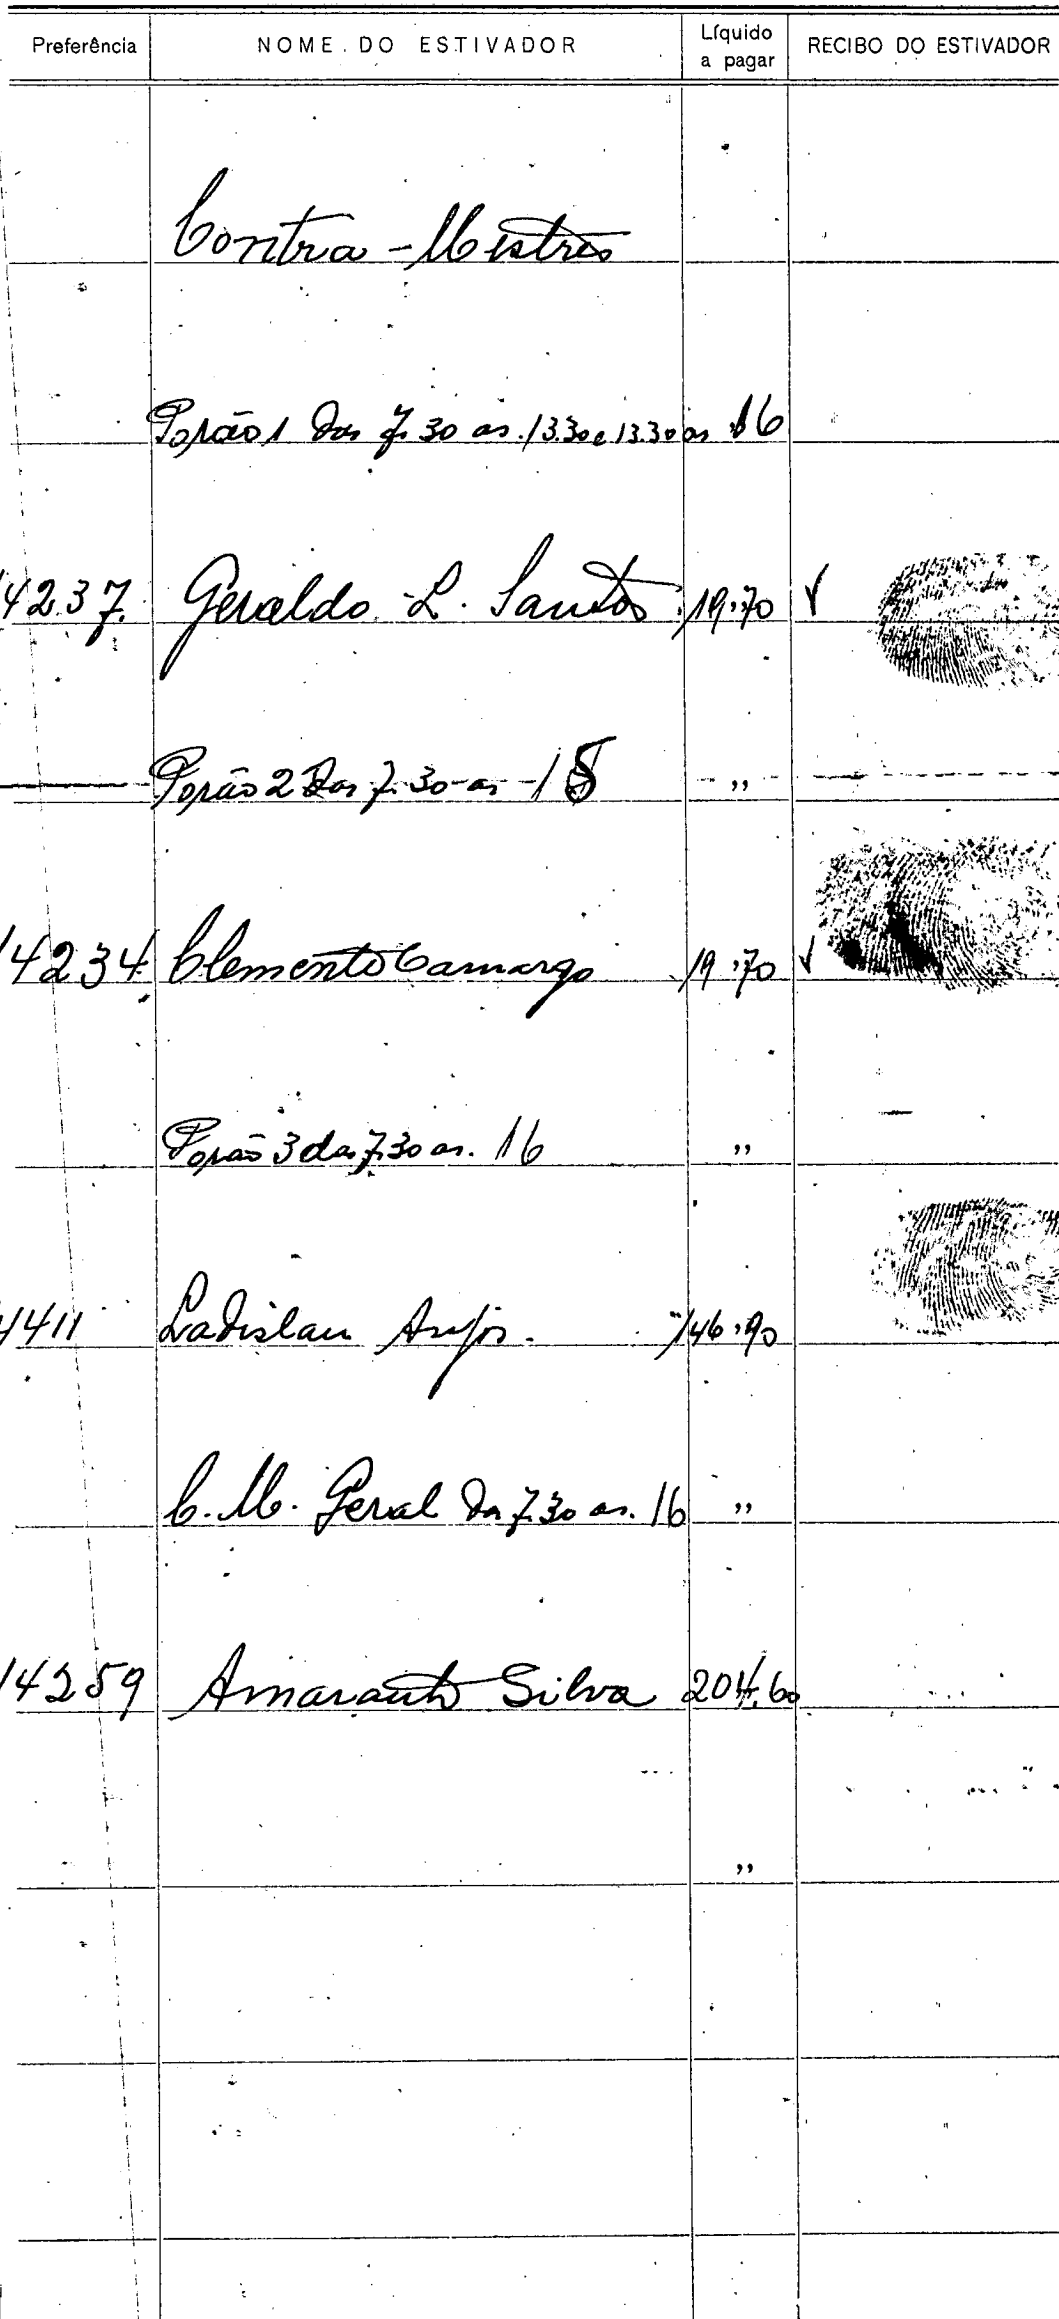 Preferência NOME DO ESTIVADOR Líquido a pagar RECIBO DO ESTIVADOR
Contra-Mestres
Porão 1 das 7.30 as 13.30 e 13.30 as 16
14237 Geraldo L. Santos 119,70
Porão 2 das 7.30 as 18 ,,
14234 Clemento Camargo 119,70
Porão 3 das 7.30 as. 16 ,,
Ladislau Anjos. 146,90
C. M. Geral das 7.30 as. 16 ,,
14259 Amaranto Silva 204,60
,,